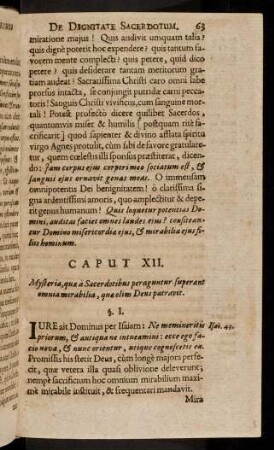 DE DIGNITATE SACERDOTUM. 63
miratione majus! Quis audivit umquam talia?
quis dignè poterit hoc expendere? quis tantum fa-
vorem mente complecti? quis petere, quid dico
petere? quis desiderare tantam meritorum gra-
tiam audeat? Sacratissima Christi caro omni labe
prorsus intacta, se conjungit putridæ carni pecca-
toris! Sanguis Christi vivificus, cum sanguine mor-
tali! Potest profectò dicere quilibet Sacerdos,
quantumvis miser & humilis [postquam ritè sa-
crificarit] quod sapienter & divino afflata spiritu
virgo Agnes protulit, cùm sibi de favore gratulare-
tur, quem cœlestis illi sponsus præstiterat, dicen-
do: jam corpus ejus corpori meo sociatum est, &
sanguis ejus ornavit genas meas. O immensam
omnipotentis Dei benignitatem! ò clarissima si-
gna ardentissimi amoris, quo amplectitur & depe-
rit genus humanum! Quis loquetur potentias Do-
mini, auditas faciet omnes laudes ejus? confitean-
tur Domino misericordia ejus, & mirabilia ejus fi-
liis hominum.
CAPUT XII.
Mysteria, qua à Sacerdotibus peraguntur superant
omnia mirabilia, qua olim Deus patravit.
§. I.
IURE ait Dominus per Isaiam: Ne memineritis Isai. 43.
priorum, & antiqua ne intueamini: ecce ego fa-
cio nova, & nunc orientur, utique cognoscetis ea.
Promissis his stetit Deus, cùm longè majora perfe-
cit, quæ vetera illa quasi oblivione deleverunt;
nempè sacrificium hoc omnium mirabilium maxi-
mè mirabile instituit, & frequentari mandavit.
Mira